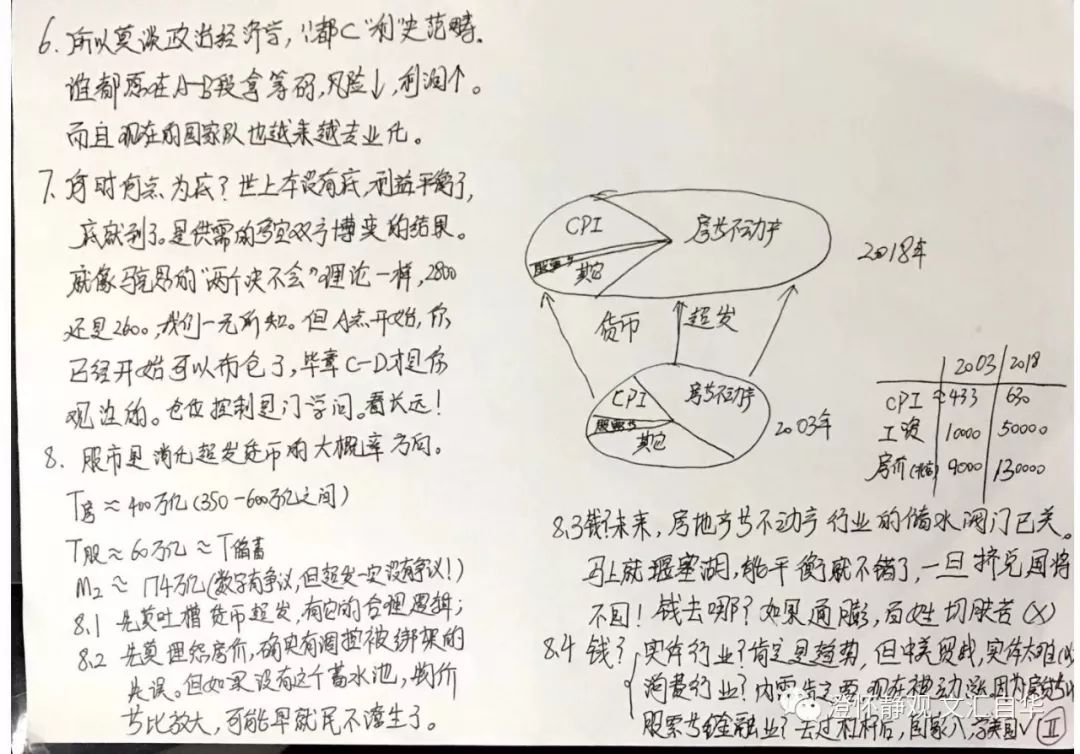 6. 所以莫谈政治经济学，都C"利"史范畴.
谁都愿在A-B段拿筹码,风险↓,利润↑。
而且现在的国家队也越来越专业化。
7. 何时何点为底？世上本没有底,利益平衡了,
底就到了。是供需的多空双方博弈的结果。
就像马克思的"两个决不会"理论一样,2800
还是2600,我们一无所知。但A点开始,你
已经开始可以布仓了,毕竟C-D才是你
观注的。仓位控制是门学问。看长远！
8. 股市是消化超发货币的大概率方向。
T房≈400万亿(350-600万亿之间)
T股≈60万亿≈T储蓄
M2≈174万亿(数字有争议,但超发一定没有争议!)
8.1 先莫吐槽货币超发,有它的合理逻辑;
8.2 先莫埋怨房价,确实有调控被绑架的
失误。但如果没有这个蓄水池,物价
节比放大,可能早就民不潦生了。
CPI
房与不动产
股票
其它
2018年
货币
超发
CPI
房与不动产
股票
其它
2003年
2003 2018
CPI ≈433 630
工资 1000 50000
房价 9000 130000
8.3 钱?未来,房地产与不动产行业的储水阀门已关。
马上就堰塞湖,能平衡就不错了,一旦挤兑国将
不国！钱去哪?如果通膨,百姓切肤苦(X)
8.4 钱? 实体行业?肯定是趋势,但中美贸战,实体太难
消费行业?内需 现在被动涨因为房
股票与金融业?去过杠杆后,国家入, 美国√ Ⅱ
澄怀静观 文汇自华